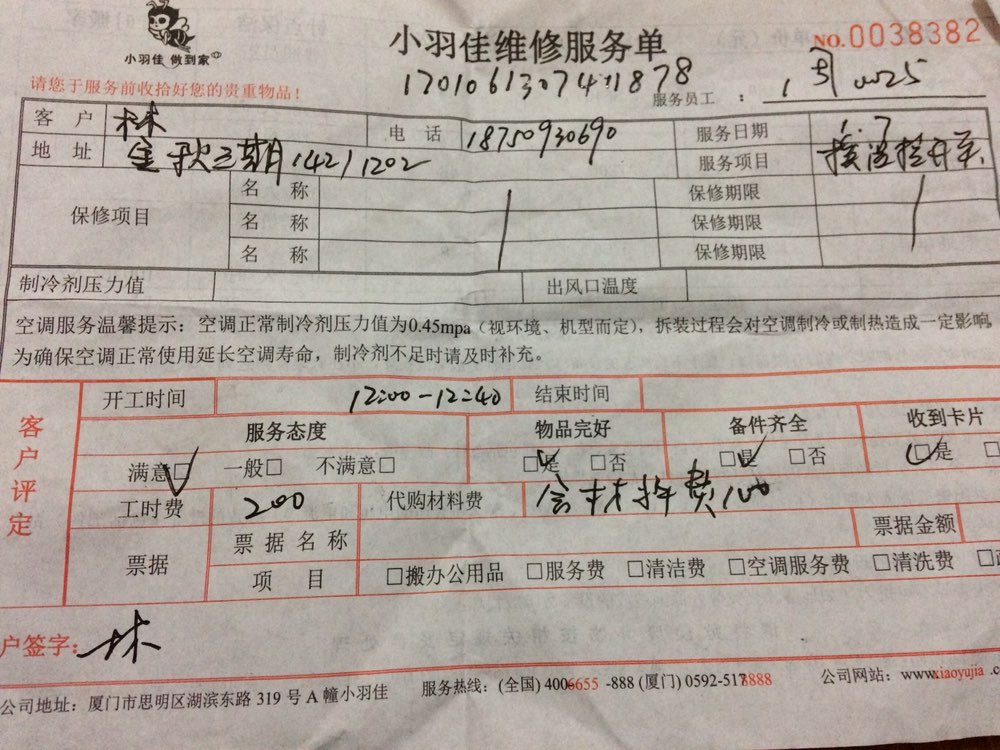 小羽佳 做到家
小羽佳维修服务单
NO.0038382
请您于服务前收拾好您的贵重物品!
服务员工 : 0025
客户 林 电话 18750930690 服务日期 1.7
地址 金秋三期142/1202 服务项目 换温控开关
保修项目 名称 保修期限
名称 保修期限
名称 保修期限
制冷剂压力值 出风口温度
空调服务温馨提示：空调正常制冷剂压力值为0.45mpa（视环境、机型而定），拆装过程会对空调制冷或制热造成一定影响，
为确保空调正常使用延长空调寿命，制冷剂不足时请及时补充。
客户评定
开工时间 12:00-12:40 结束时间
服务态度 物品完好 备件齐全 收到卡片
满意□ 一般□ 不满意□ □是 □否 □是 □否 □是
工时费 200 代购材料费 含材料费100
票据 票据名称 票据金额
项目 □搬办公用品 □服务费 □清洁费 □空调服务费 □清洗费
户签字: 林
公司地址：厦门市思明区湖滨东路 319 号 A 幢小羽佳 服务热线：(全国) 4006655 -888 (厦门) 0592-5178888 公司网站：www.xiaoyujia .c